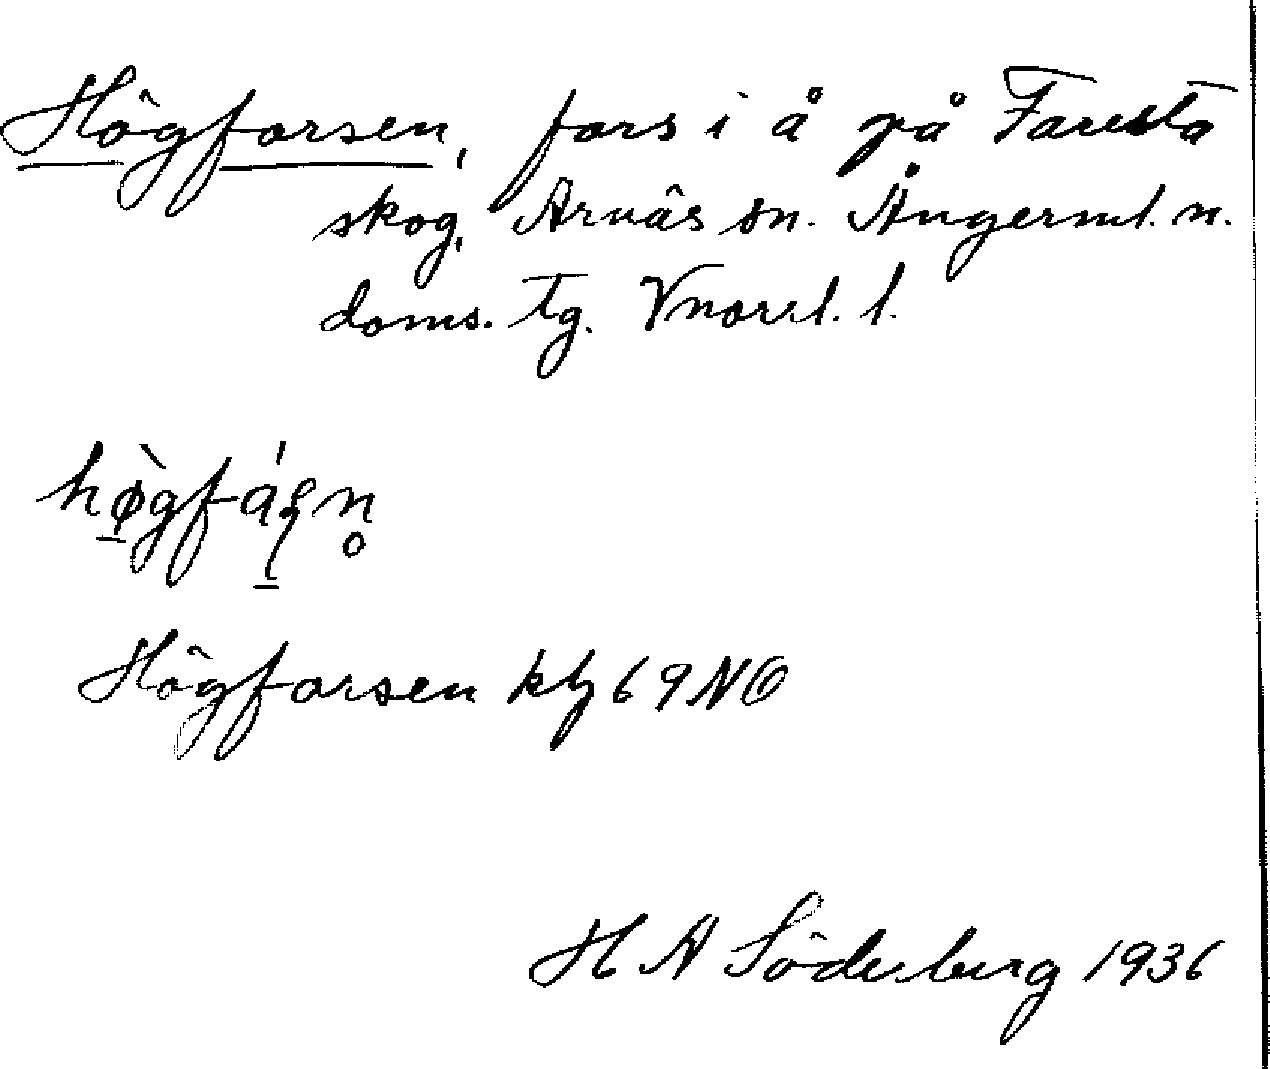 Högforsen, fors i å på Faresta
skog, Arnäs sn. Ångerml. n.
doms. tg. Vnorrl. l.
Högforsen kbl 69 NO
H A Söderberg 1936